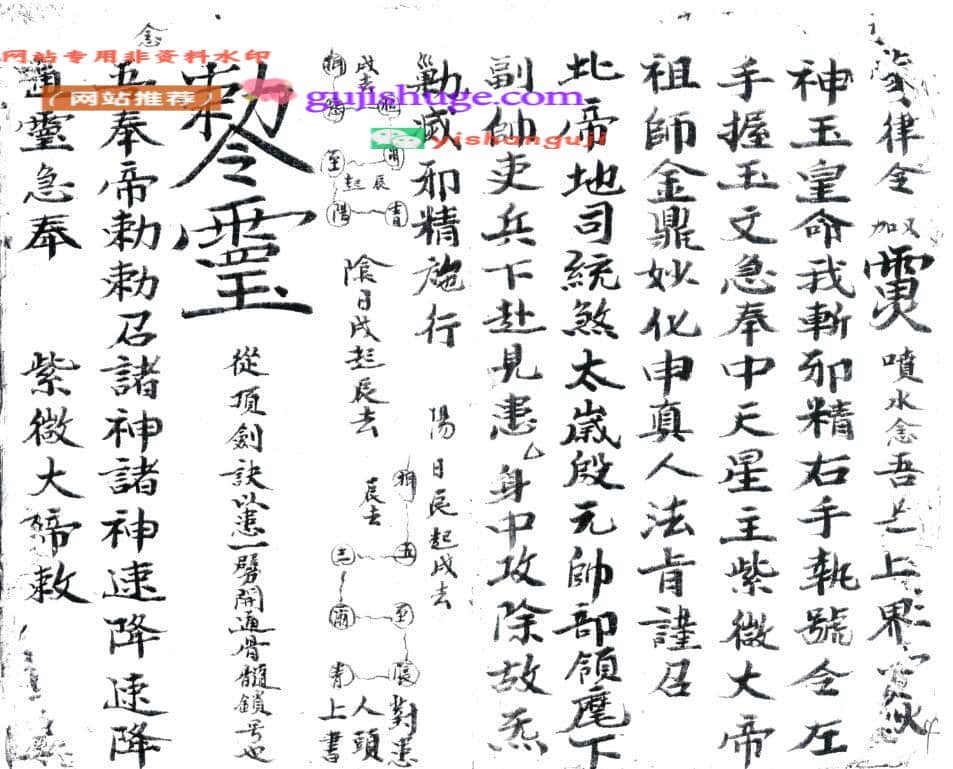 律令 加 噴水念吾是上界
神玉皇命我斬邪精右手執號令左
手握玉文急奉中天星主紫微大帝
祖師金鼎妙化申真人法肯謹召
北帝地司統煞太歲殷元帥部領麾下
副帥吏兵下赴見患厶身中攻除故炁
勦滅邪精施行 陽日辰起戌去
戌去
至 起 辰
陽 青
陰日戌起辰去
辰去
五
至
青
對患
人頭
上書
念
勅令
從頂劍訣以患一劈開通骨髓鎖号也
五奉帝勅勅召諸神諸神速降速降
靈急奉 紫微大帝敕
网站专用非资料水印
(网站推荐)
gujishuge.com
yishunguji